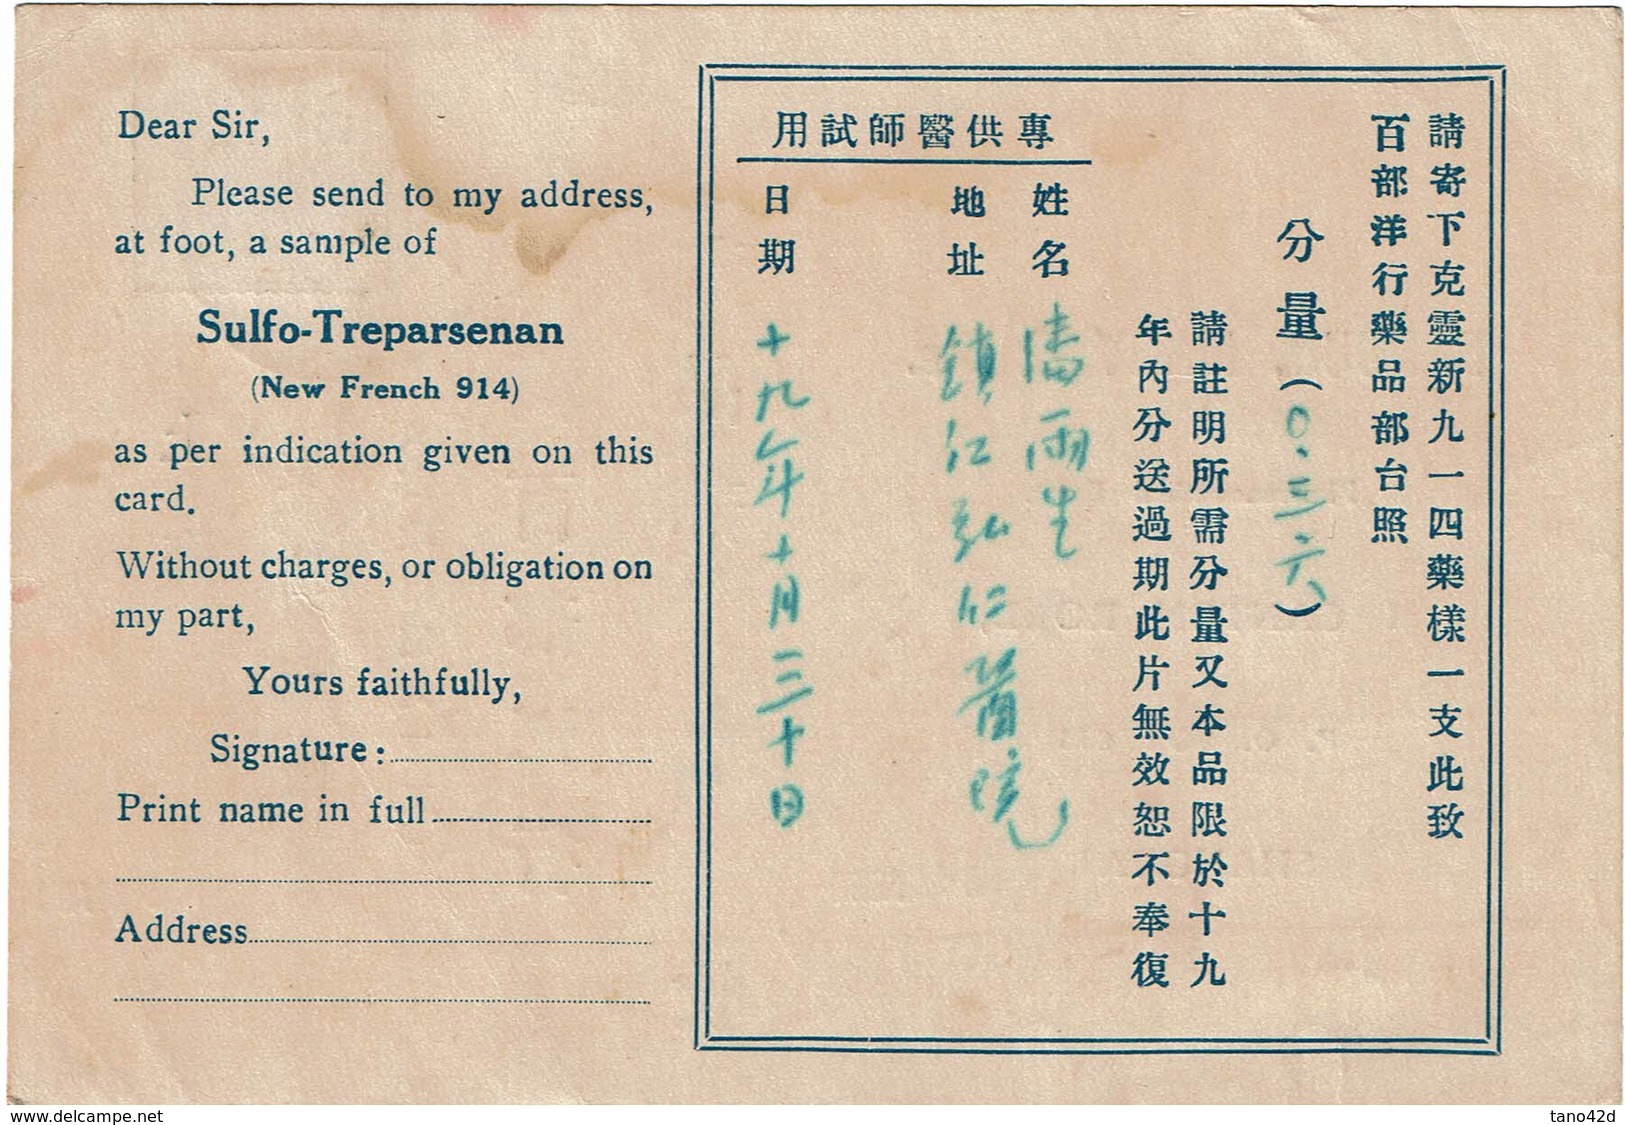 Dear Sir,
Please send to my address,
at foot, a sample of
Sulfo-Treparsenan
(New French 914)
as per indication given on this
card.
Without charges, or obligation on
my part,
Yours faithfully,
Signature:
Print name in full
Address
請寄下克靈新九一四藥樣一支此致
百部洋行藥品部台照
分量(〇.三六)
請註明所需分量又本品限於十九
年內分送過期此片無效恕不奉復
專供醫師試用
姓名 潘雨生
地址 鎮江弘仁醫院
日期 十九年十月三十日
www.delcampe.net
tano42d